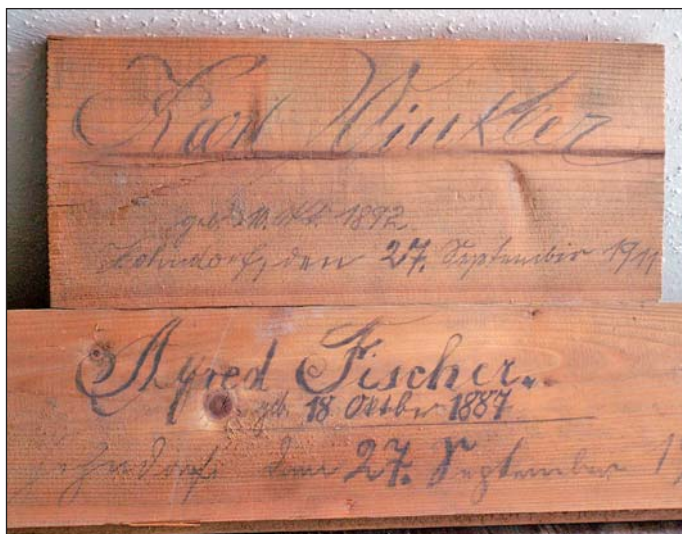 Karl Winkler
geb. 10. Okt. 1892
Hohndorf, den 27. September 1911
Alfred Fischer.
geb. 18. Oktber 1887
den 27. September